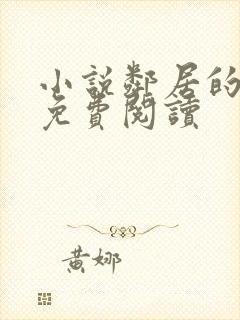 小說鄰居的
免費閱讀
黃娜